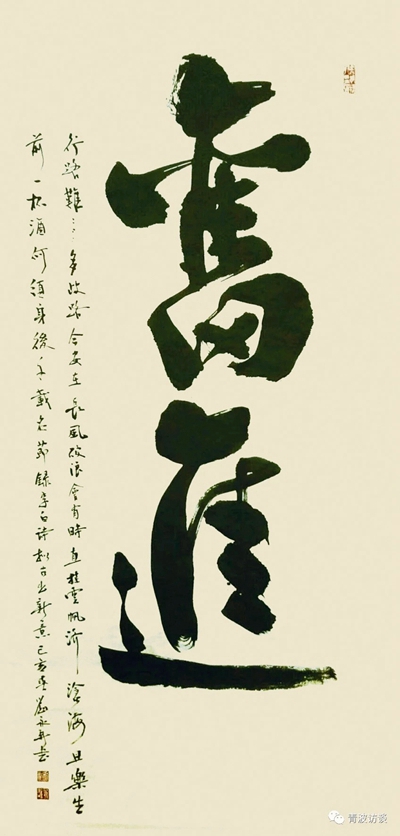 奮進
行路難々多歧路今安在長風破浪會有時直挂雲帆濟滄海且樂生
前一杯酒何須身後千載名節錄李白詩新意己亥
青波访谈